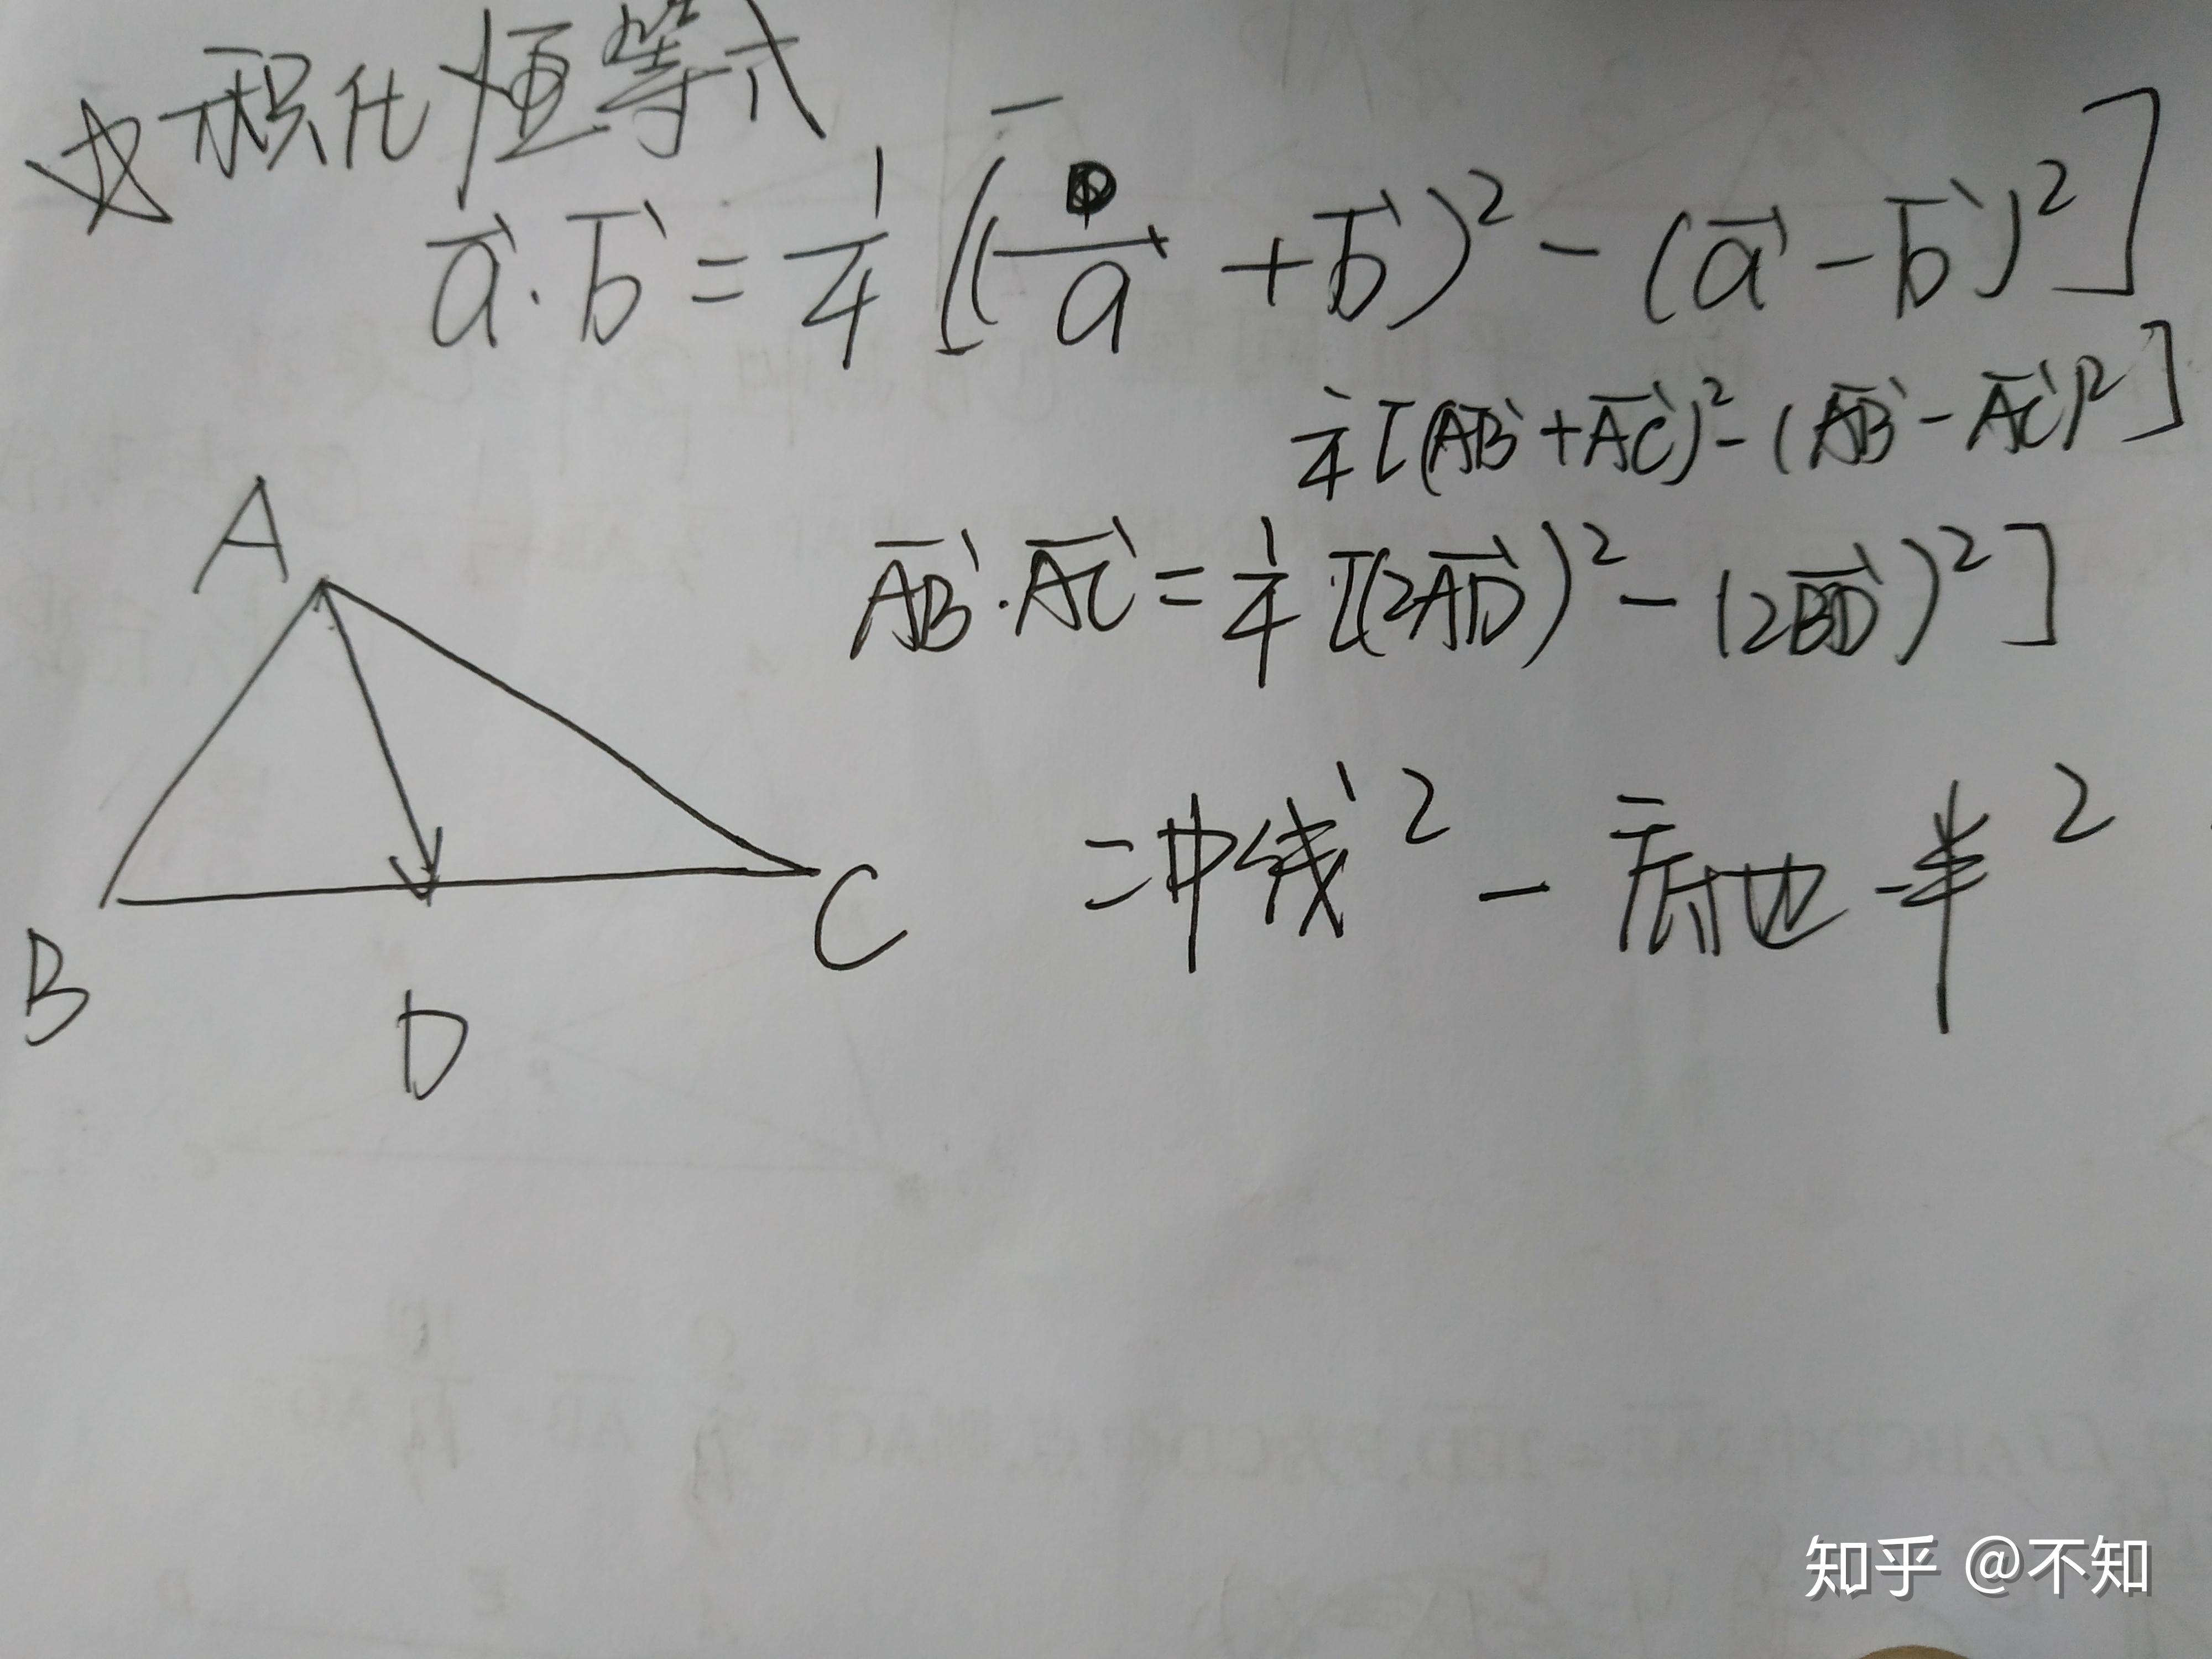 ☆积化恒等式
a⃗·b⃗=1/4[(a⃗+b⃗)²-(a⃗-b⃗)²]
1/4[(AB⃗+AC⃗)²-(AB⃗-AC⃗)²]
AB⃗·AC⃗=1/4[(2AD⃗)²-(2BD⃗)²]
=中线²-底边一半²
A
B
C
D
知乎 @不知